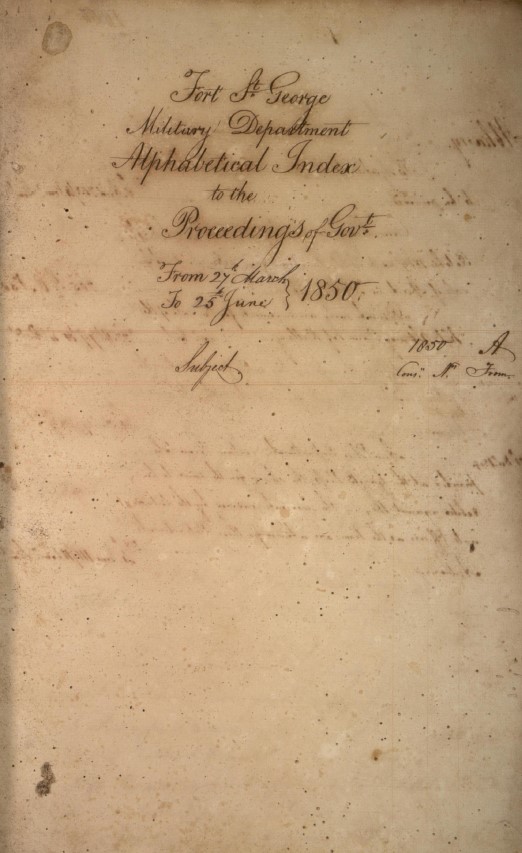 Fort St. George
Military Department
Alphabetical Index
to the
Proceedings of Govt.
From 27th March
To 25th June } 1850.
1850 A
Subject Cons. No. From